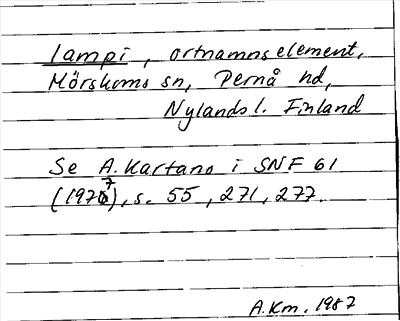 lampi, ortnamnselement,
Mörskoms sn, Pernå hd,
Nylands l. Finland
Se A. Kartano i SNF 61
(1977), s. 55, 271, 277.
A.Km. 1987